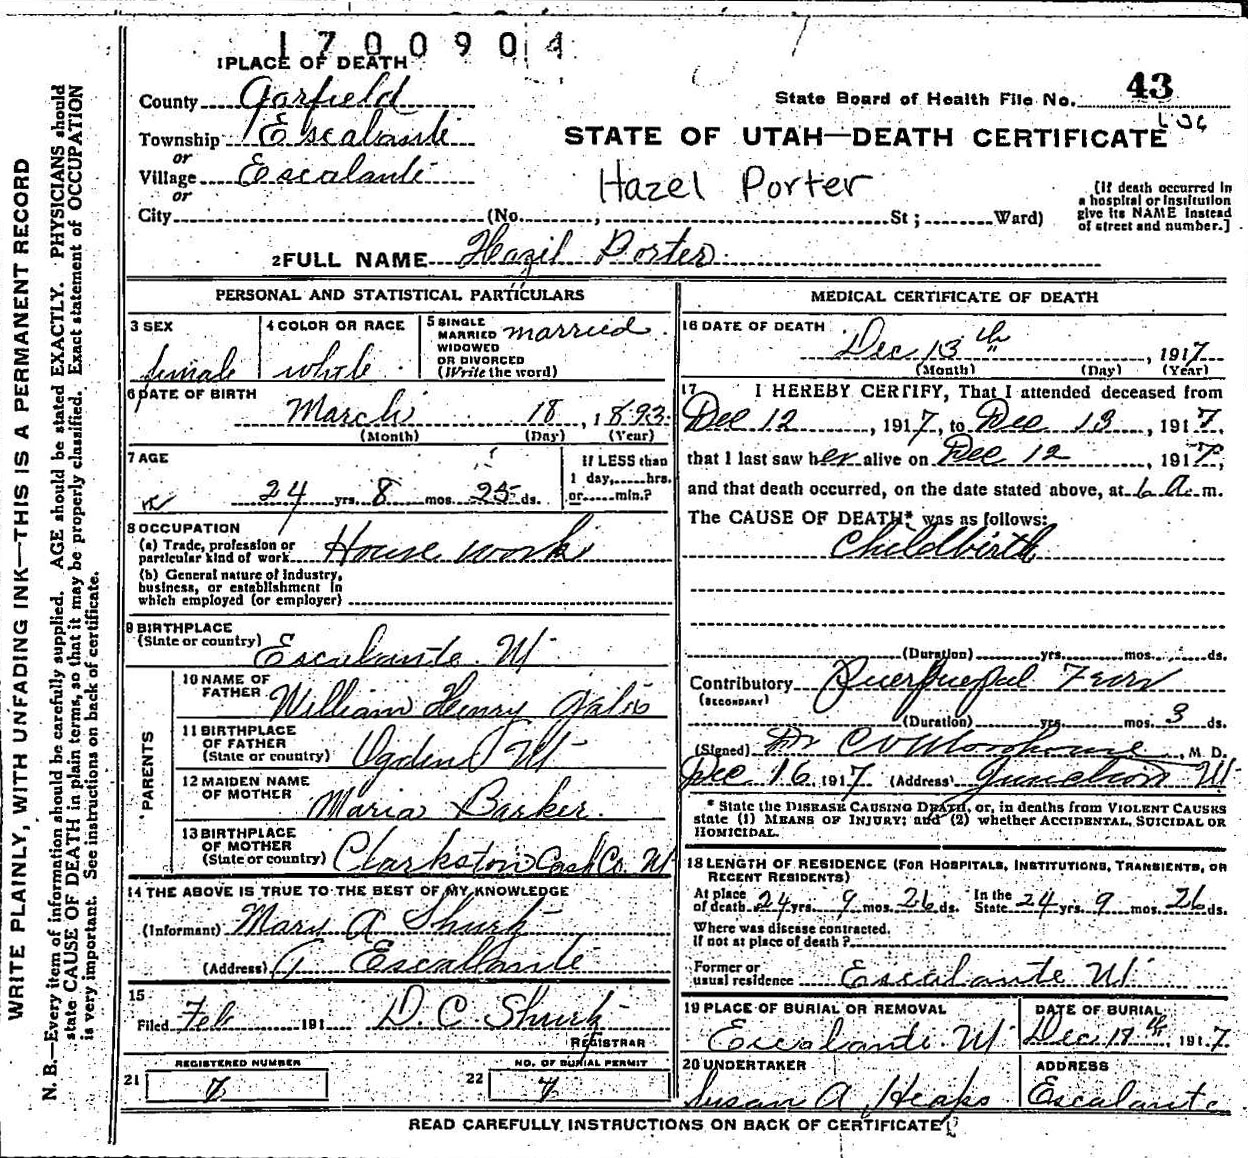 1700904
1 PLACE OF DEATH
County Garfield
State Board of Health File No. 43
Township Escalante
or
STATE OF UTAH—DEATH CERTIFICATE
Village Escalante
or
Hazel Porter
City (No. , St; Ward)
(If death occurred in
a hospital or institution
give its NAME instead
of street and number.]
2 FULL NAME Hazil Porter
PERSONAL AND STATISTICAL PARTICULARS
3 SEX
female
4 COLOR OR RACE
white
5 SINGLE
MARRIED
WIDOWED
OR DIVORCED
(Write the word)
married
6 DATE OF BIRTH
March 18, 1893
(Month) (Day) (Year)
7 AGE
24 yrs. 8 mos. 25 ds.
If LESS than
1 day, hrs.
or min.?
8 OCCUPATION
(a) Trade, profession or
particular kind of work House work
(b) General nature of industry,
business, or establishment in
which employed (or employer)
9 BIRTHPLACE
(State or country) Escalante Ut
PARENTS
10 NAME OF
FATHER William Henry Gates
11 BIRTHPLACE
OF FATHER
(State or country) Ogden Ut
12 MAIDEN NAME
OF MOTHER Maria Barker
13 BIRTHPLACE
OF MOTHER
(State or country) Clarkston Cash Co. Ut
14 THE ABOVE IS TRUE TO THE BEST OF MY KNOWLEDGE
(Informant) Mary A Shurtz
(Address) Escallante
15
Filed Feb 191 D. C. Shurtz
REGISTRAR
REGISTERED NUMBER
21 7
NO. OF BURIAL PERMIT
22 7
MEDICAL CERTIFICATE OF DEATH
16 DATE OF DEATH
Dec 13th, 1917
(Month) (Day) (Year)
17 I HEREBY CERTIFY, That I attended deceased from
Dec 12, 1917, to Dec 13, 1917,
that I last saw her alive on Dec 12, 1917,
and that death occurred, on the date stated above, at 6 a.m.
The CAUSE OF DEATH* was as follows:
Childbirth
(Duration) yrs. mos. ds.
Contributory Puerpueful Fever
(SECONDARY)
(Duration) yrs. mos. 3 ds.
(Signed) Dr C V Moorhouse, M. D.
Dec 16 1917 (Address) Junction Ut
* State the DISEASE CAUSING DEATH, or, in deaths from VIOLENT CAUSES
state (1) MEANS OF INJURY; and (2) whether ACCIDENTAL, SUICIDAL OR
HOMICIDAL.
18 LENGTH OF RESIDENCE (FOR HOSPITALS, INSTITUTIONS, TRANSIENTS, OR
RECENT RESIDENTS)
At place
of death 24 yrs. 9 mos. 26 ds.
In the
State 24 yrs. 9 mos. 26 ds.
Where was disease contracted,
if not at place of death?
Former or
usual residence Escalante Ut
19 PLACE OF BURIAL OR REMOVAL
Escalante Ut
DATE OF BURIAL
Dec. 18th, 1917.
20 UNDERTAKER
Susan A Heaps
ADDRESS
Escalante
READ CAREFULLY INSTRUCTIONS ON BACK OF CERTIFICATE
WRITE PLAINLY, WITH UNFADING INK—THIS IS A PERMANENT RECORD
N. B.—Every item of information should be carefully supplied. AGE should be stated EXACTLY. PHYSICIANS should
state CAUSE OF DEATH in plain terms, so that it may be properly classified. Exact statement of OCCUPATION
is very important. See instructions on back of certificate.